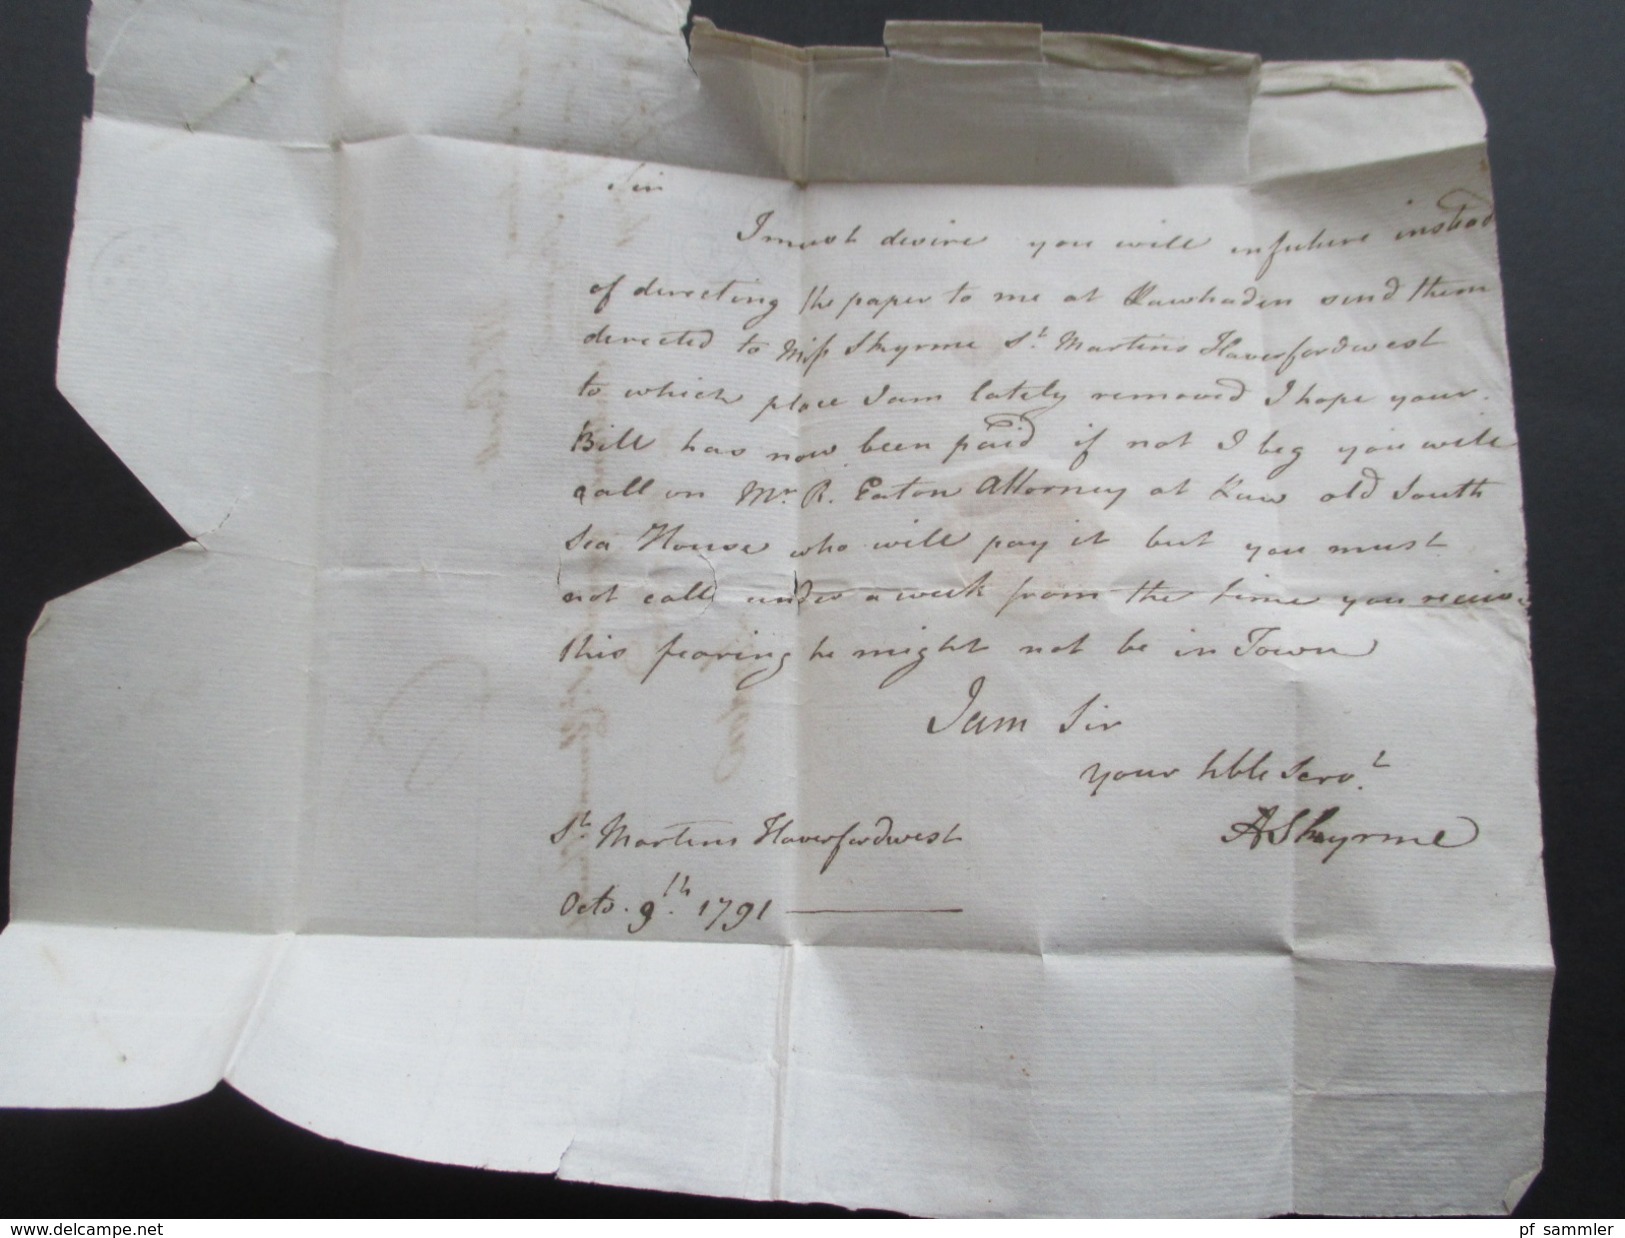 Sir
I must desire you will in future instead
of directing the paper to me at Lawhaden send them
directed to Miss Skyrme St. Martins Haverfordwest
to which place I am lately removed I hope your
Bill has now been paid if not I beg you will
call on Mr R. Eaton Attorney at Law old South
Sea House who will pay it but you must
not call under a week from the time you receive
this fearing he might not be in Town
I am Sir
your hble Servt.
A Skyrme
St. Martins Haverfordwest
Octo. 9th. 1791
www.delcampe.net
pf_sammler